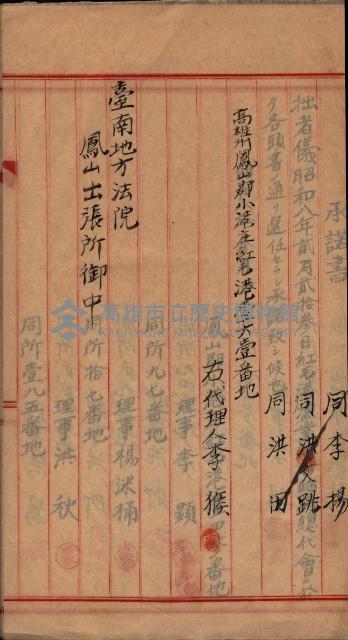 同 李 楊
同 洪 文 跳
同 洪 田
高雄州鳳山郡小港庄紅毛港三六壹番地
右代理人 李 猴
臺南地方法院
鳳山出張所御中
承諾書
拙者儀昭和八年貳月貳拾參日紅毛港
總代會ニ於
テ各頭書ノ通リ選任セラレ承諾致シ候也
理事 李 顕
同所九七番地
理事 楊 洣 桶
同所拾七番地
理事 洪 秋
同所壹九五番地
高雄市立歷史博物館